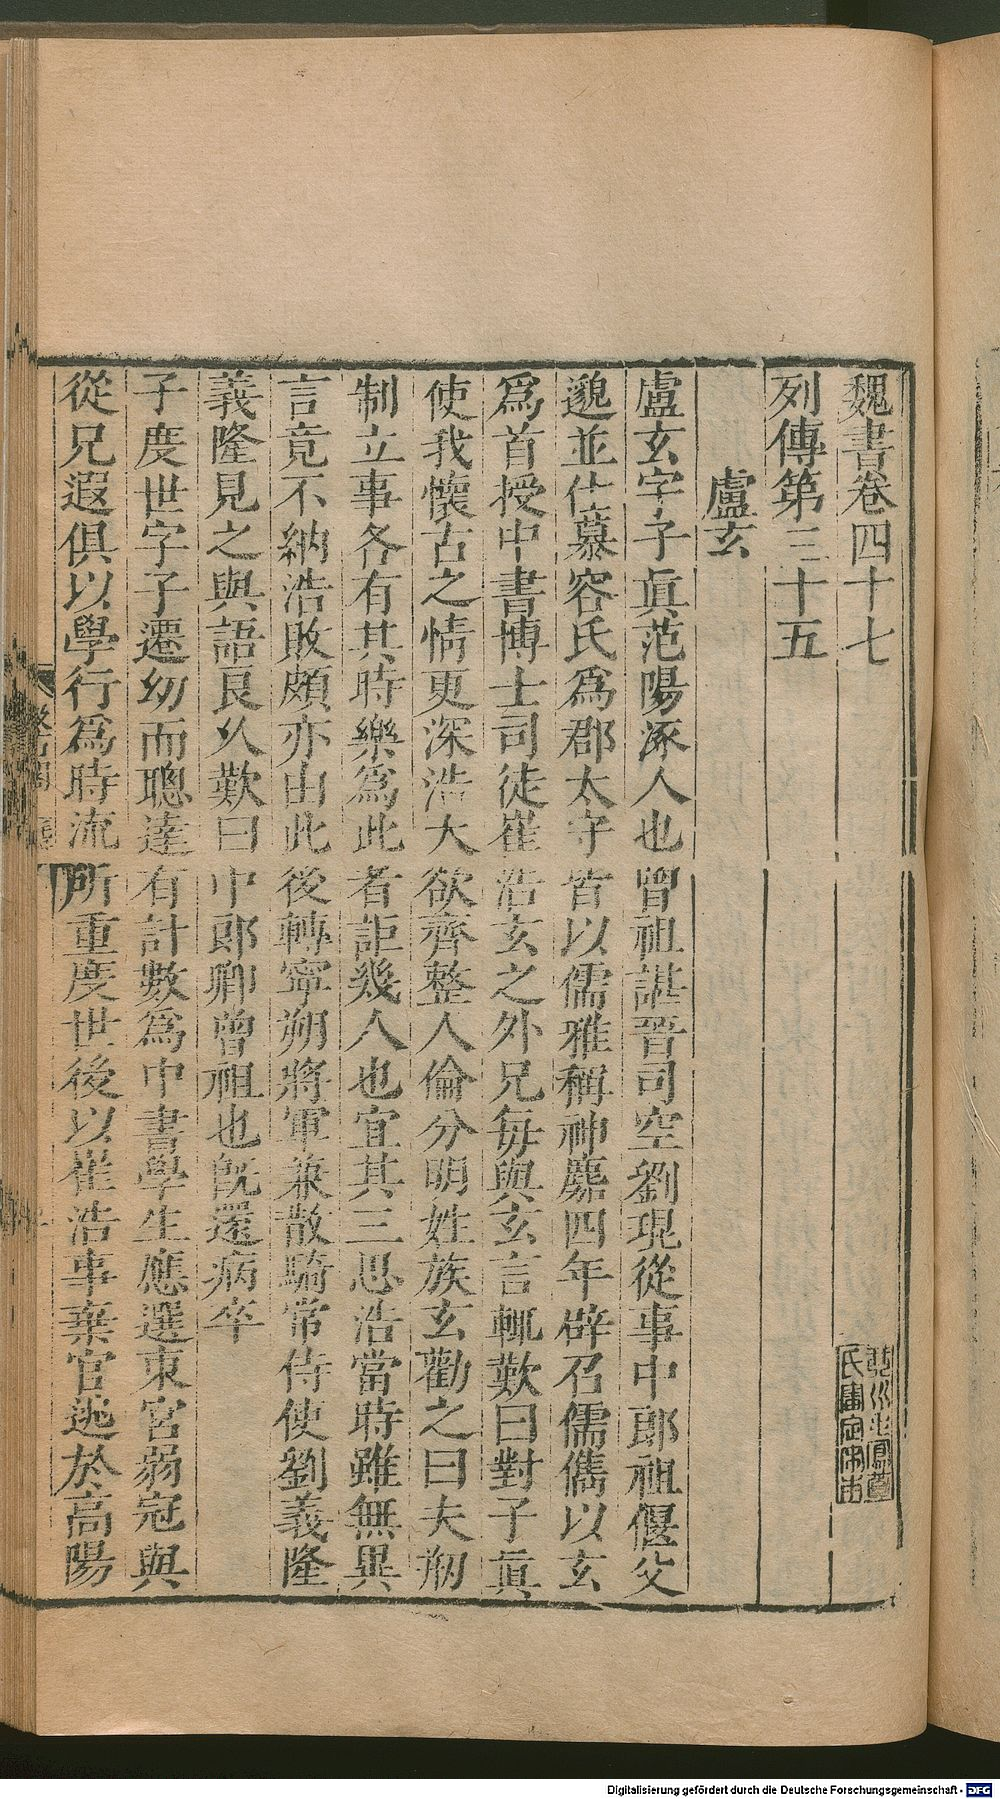 魏書卷四十七
列傳第三十五
盧玄
盧玄字子眞范陽涿人也曾祖諶晉司空劉琨從事中郎祖偃父
邈並仕慕容氏爲郡太守皆以儒雅稱神䴥四年辟召儒儁以玄
爲首授中書博士司徒崔浩玄之外兄每與玄言輒歎曰對子眞
使我懷古之情更深浩大欲齊整人倫分明姓族玄勸之曰夫剏
制立事各有其時樂爲此者詎幾人也宜其三思浩當時雖無異
言竟不納浩敗頗亦由此後轉寧朔將軍兼散騎常侍使劉義隆
義隆見之與語良久歎曰中郎卿曾祖也旣還病卒
子度世字子遷幼而聰達有計數爲中書學生應選東宮弱冠與
從兄遐俱以學行爲時流所重度世後以崔浩事棄官逃於高陽
Digitalisierung gefördert durch die Deutsche Forschungsgemeinschaft - DFG